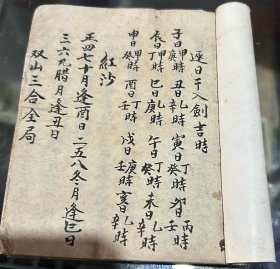 逐日干入劍吉時
子日甲癸時 丑日乙辛時 寅日丁癸時 卯日丙壬時
辰日甲丁時 巳日乙庚時 午日丁癸時 未日乙辛時
申日甲癸時 酉日丁壬時 戌日庚壬時 亥日乙辛時
紅沙
正四七十月逢酉日 二五八冬月逢巳日
三六九腊月逢丑日
双山三合全局